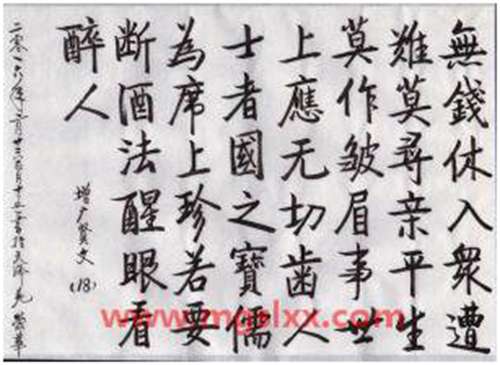 無錢休入衆遭
難莫尋亲平生
莫作皺眉事世
上應无切齒人
士者國之寶儒
為席上珍若要
断酒法醒眼看
醉人
增广贤文
(18)
二零一六年
www.mgslxx.com